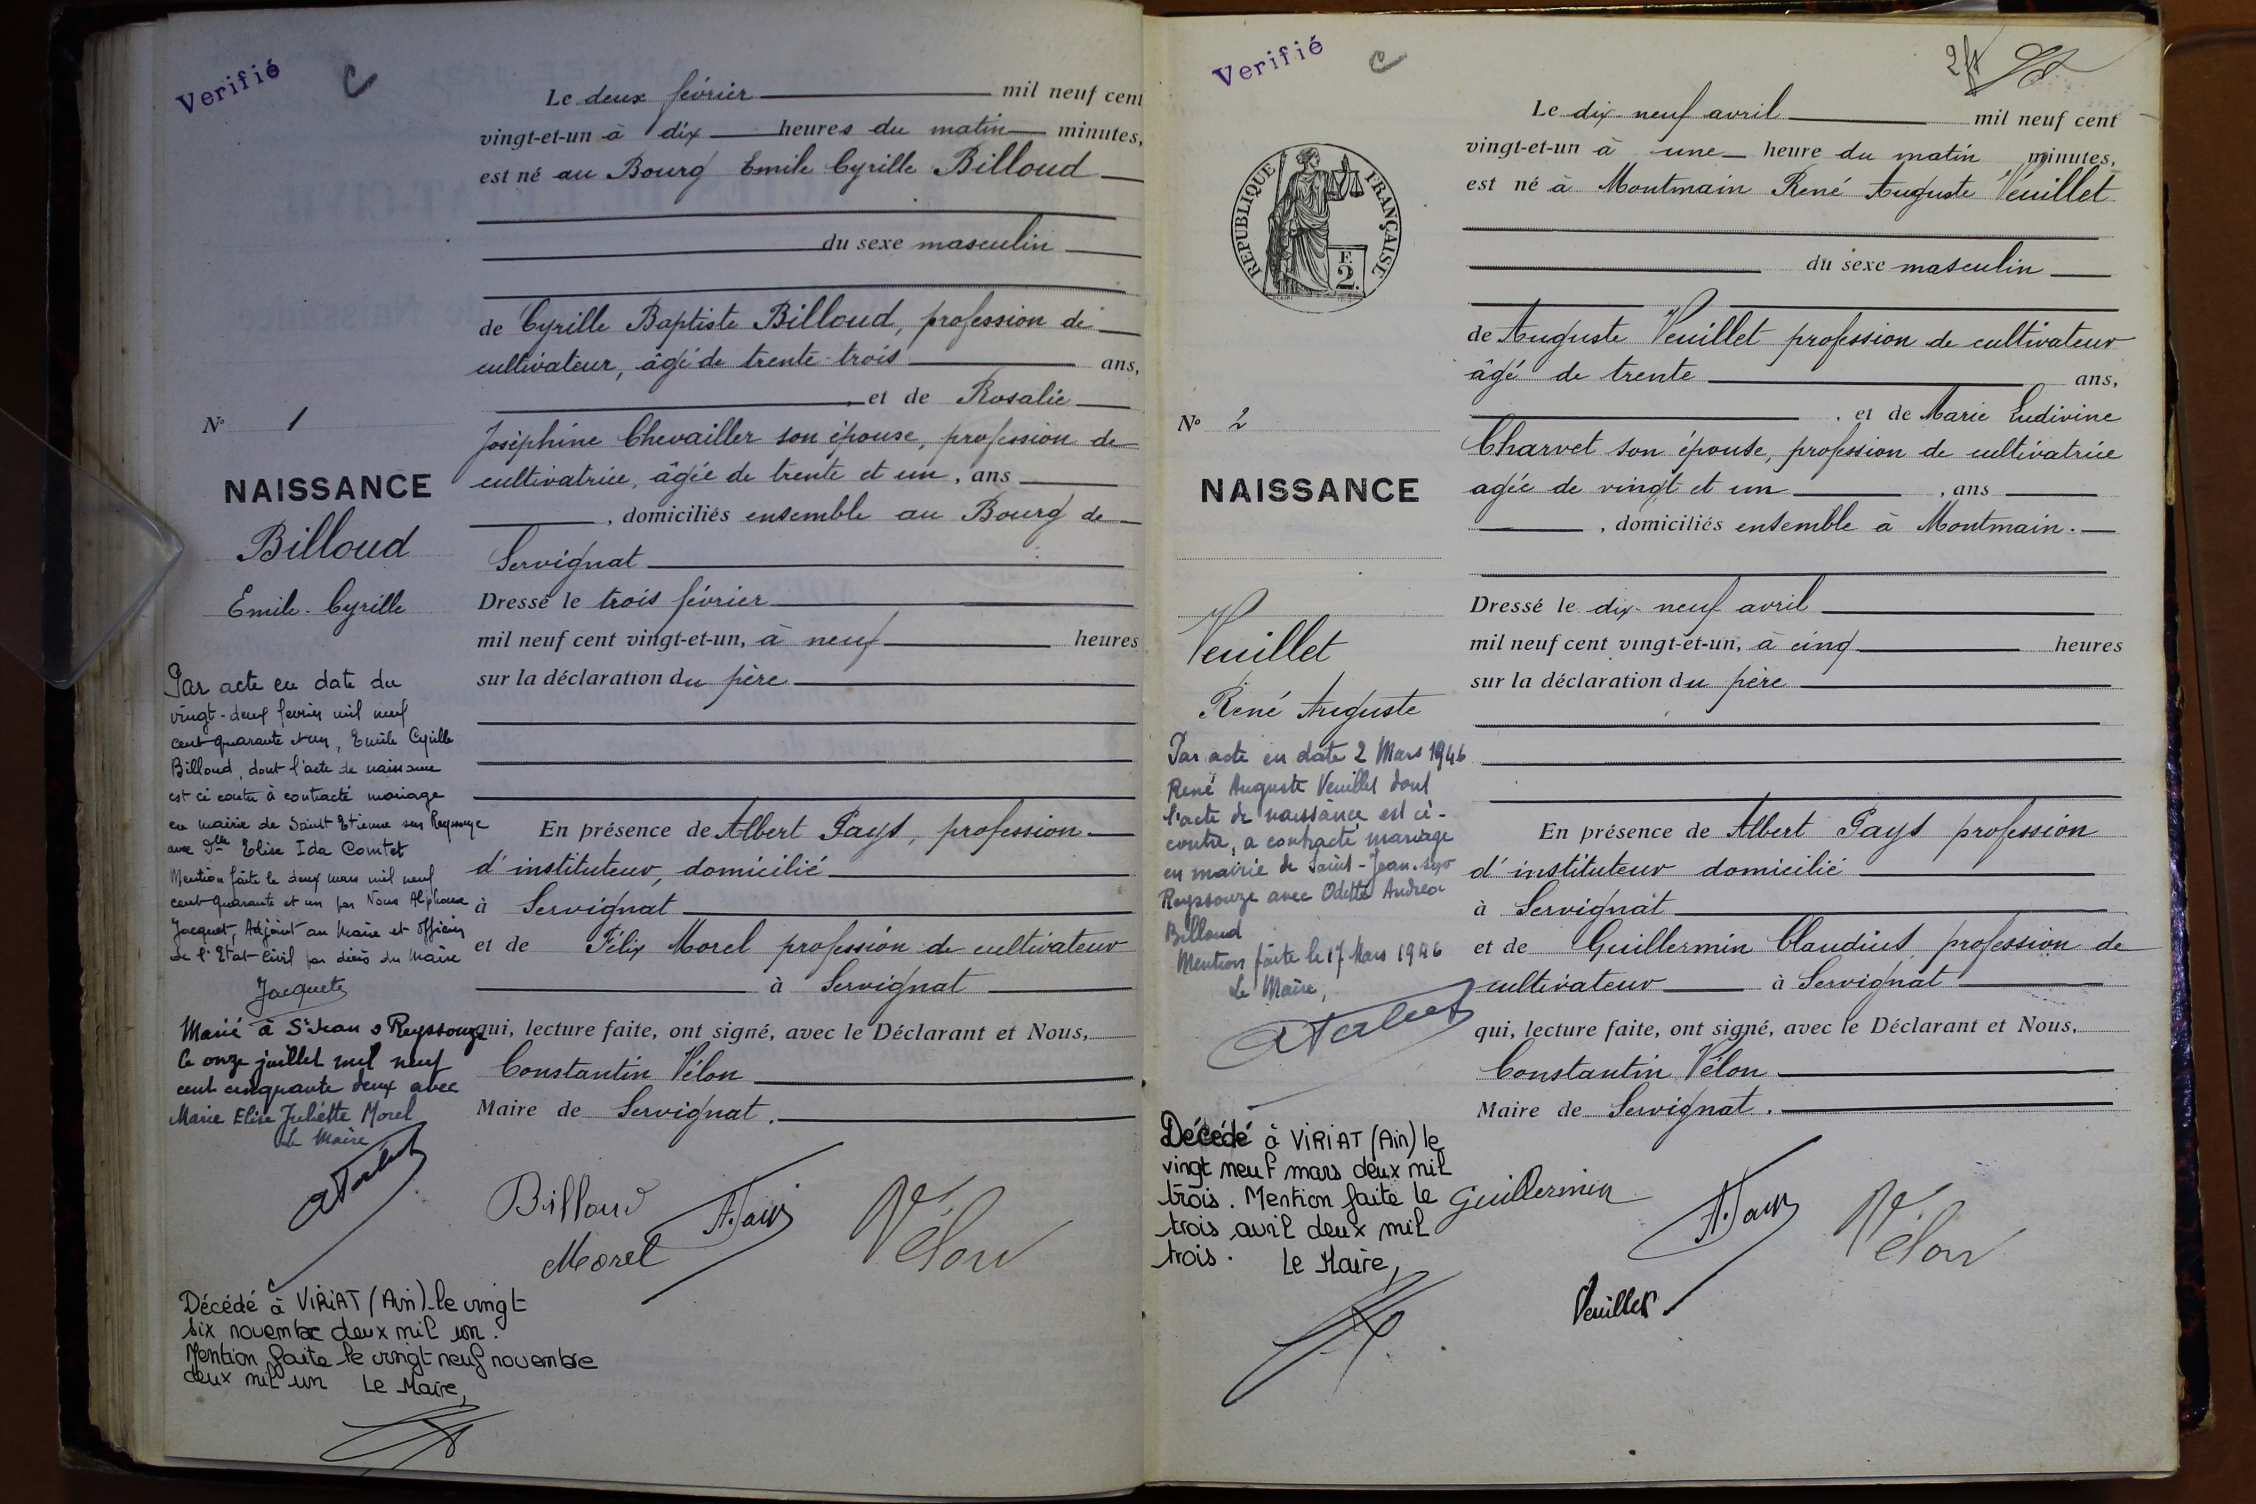 Verifié
C
Le deux février mil neuf cent
vingt-et-un à dix heures du matin minutes,
est né au Bourg Emile Cyrille Billoud
du sexe masculin
de Cyrille Baptiste Billoud, profession de
cultivateur, âgé de trente-trois ans,
, et de Rosalie
Joséphine Chevailler son épouse, profession de
cultivatrice, âgée de trente et un, ans
, domiciliés ensemble au Bourg de
Servignat
Dressé le trois février
mil neuf cent vingt-et-un, à neuf heures
sur la déclaration du père
En présence de Albert Pays, profession
d'instituteur, domicilié
à Servignat
et de Félix Morel profession de cultivateur
à Servignat
qui, lecture faite, ont signé, avec le Déclarant et Nous,
Constantin Vélon
Maire de Servignat.
Billoud
Morel
Vélon
No 1
NAISSANCE
Billoud
Emile-Cyrille
Par acte en date du
vingt-deux fevrier mil neuf
cent quarante et un, Emile Cyrille
Billoud, dont l'acte de naissance
est ci contre à contracté mariage
en mairie de Saint Etienne sur Reyssouze
avec Dlle Elise Ida Comtet
Mention faite le deux mars mil neuf
cent quarante et un par Nous Alphonse
Jacquet, Adjoint au Maire et officier
de l'Etat-Civil par décès du Maire
Jacquet
Marié à St Jean s Reyssouze
le onze juillet mil neuf
cent cinquante deux avec
Marie Elise Juliette Morel
Le Maire
Décédé à VIRIAT (Ain) le vingt
six novembre deux mil un.
Mention faite le vingt neuf novembre
deux mil un Le Maire,
Verifié
C
Le dix-neuf avril mil neuf cent
vingt-et-un à une heure du matin minutes,
est né à Montmain René Auguste Veuillet
du sexe masculin
de Auguste Veuillet profession de cultivateur
âgé de trente ans,
, et de Marie Ludivine
Charvet son épouse, profession de cultivatrice
agée de vingt et un , ans
, domiciliés ensemble à Montmain.
Dressé le dix-neuf avril
mil neuf cent vingt-et-un, à cinq heures
sur la déclaration du père
En présence de Albert Pays profession
d'instituteur domicilié
à Servignat
et de Guillermin Claudius, profession de
cultivateur à Servignat
qui, lecture faite, ont signé, avec le Déclarant et Nous,
Constantin Vélon
Maire de Servignat.
Guillermin
Vélon
Veuillet
REPUBLIQUE FRANÇAISE
F.
2.
No 2
NAISSANCE
Veuillet
René Auguste
Par acte en date 2 Mars 1946
René Auguste Veuillet dont
l'acte de naissance est ci-
contre, a contracté mariage
en mairie de Saint-Jean-sur
Reyssouze avec Odette Andrea
Billoud
Mention faite le 17 Mars 1946
Le Maire,
Décédé à VIRIAT (Ain) le
vingt neuf mars deux mil
trois. Mention faite le
trois avril deux mil
trois. Le Maire,